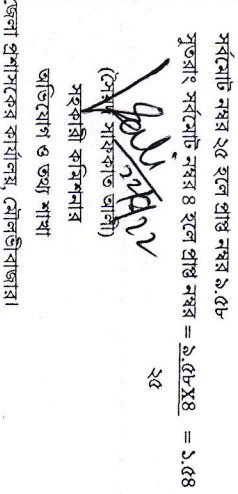 সর্বমোট নম্বর ২৫ হলে প্রাপ্ত নম্বর ৯.৫৮
সুতরাং সর্বমোট নম্বর ৪ হলে প্রাপ্ত নম্বর = ৯.৫৮X৪ = ১.৫৪
২৫
সহকারি কমিশনার
অভিযোগ ও তথ্য শাখা
জেলা প্রশাসকের কার্যালয়, মৌলভীবাজার।